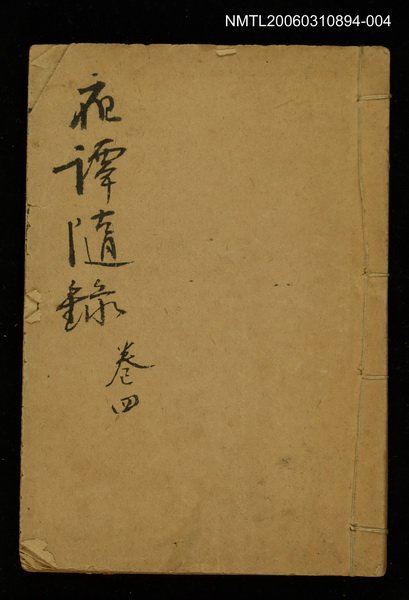 NMTL20060310894-004
夜譚隨錄
卷四